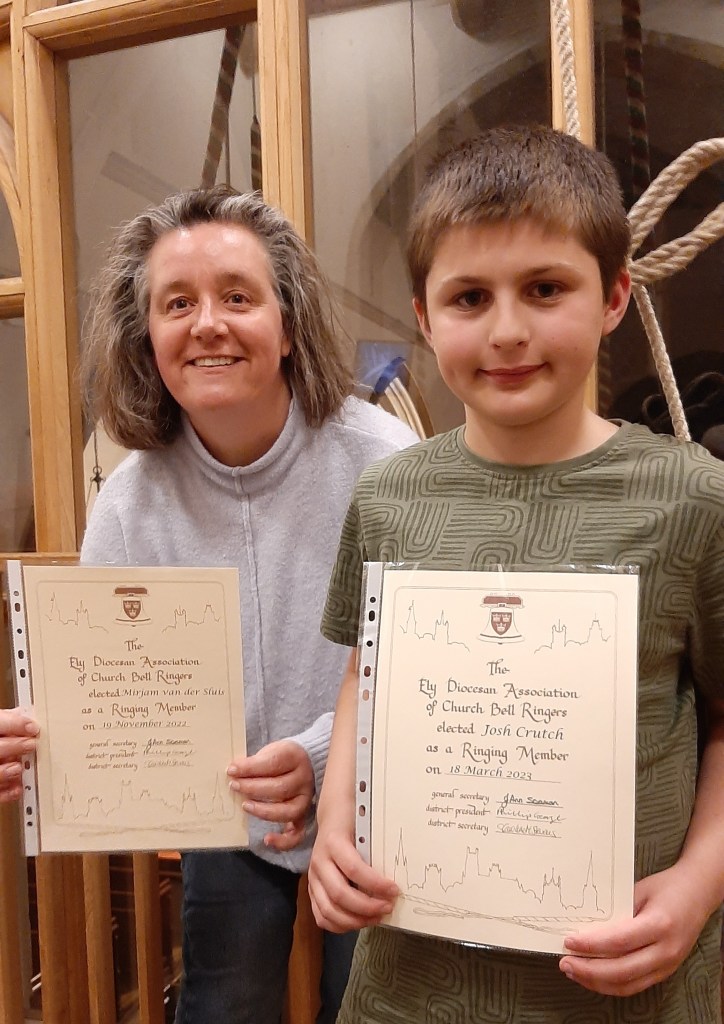 The
Ely Diocesan Association
of Church Bell Ringers
elected Mirjam van der Sluis
as a Ringing Member
on 19 November 2022
general secretary JAnn Seaman
district president
district secretary
The
Ely Diocesan Association
of Church Bell Ringers
elected Josh Crutch
as a Ringing Member
on 18 March 2023
general secretary JAnn Seaman
district president Phillip George
district secretary